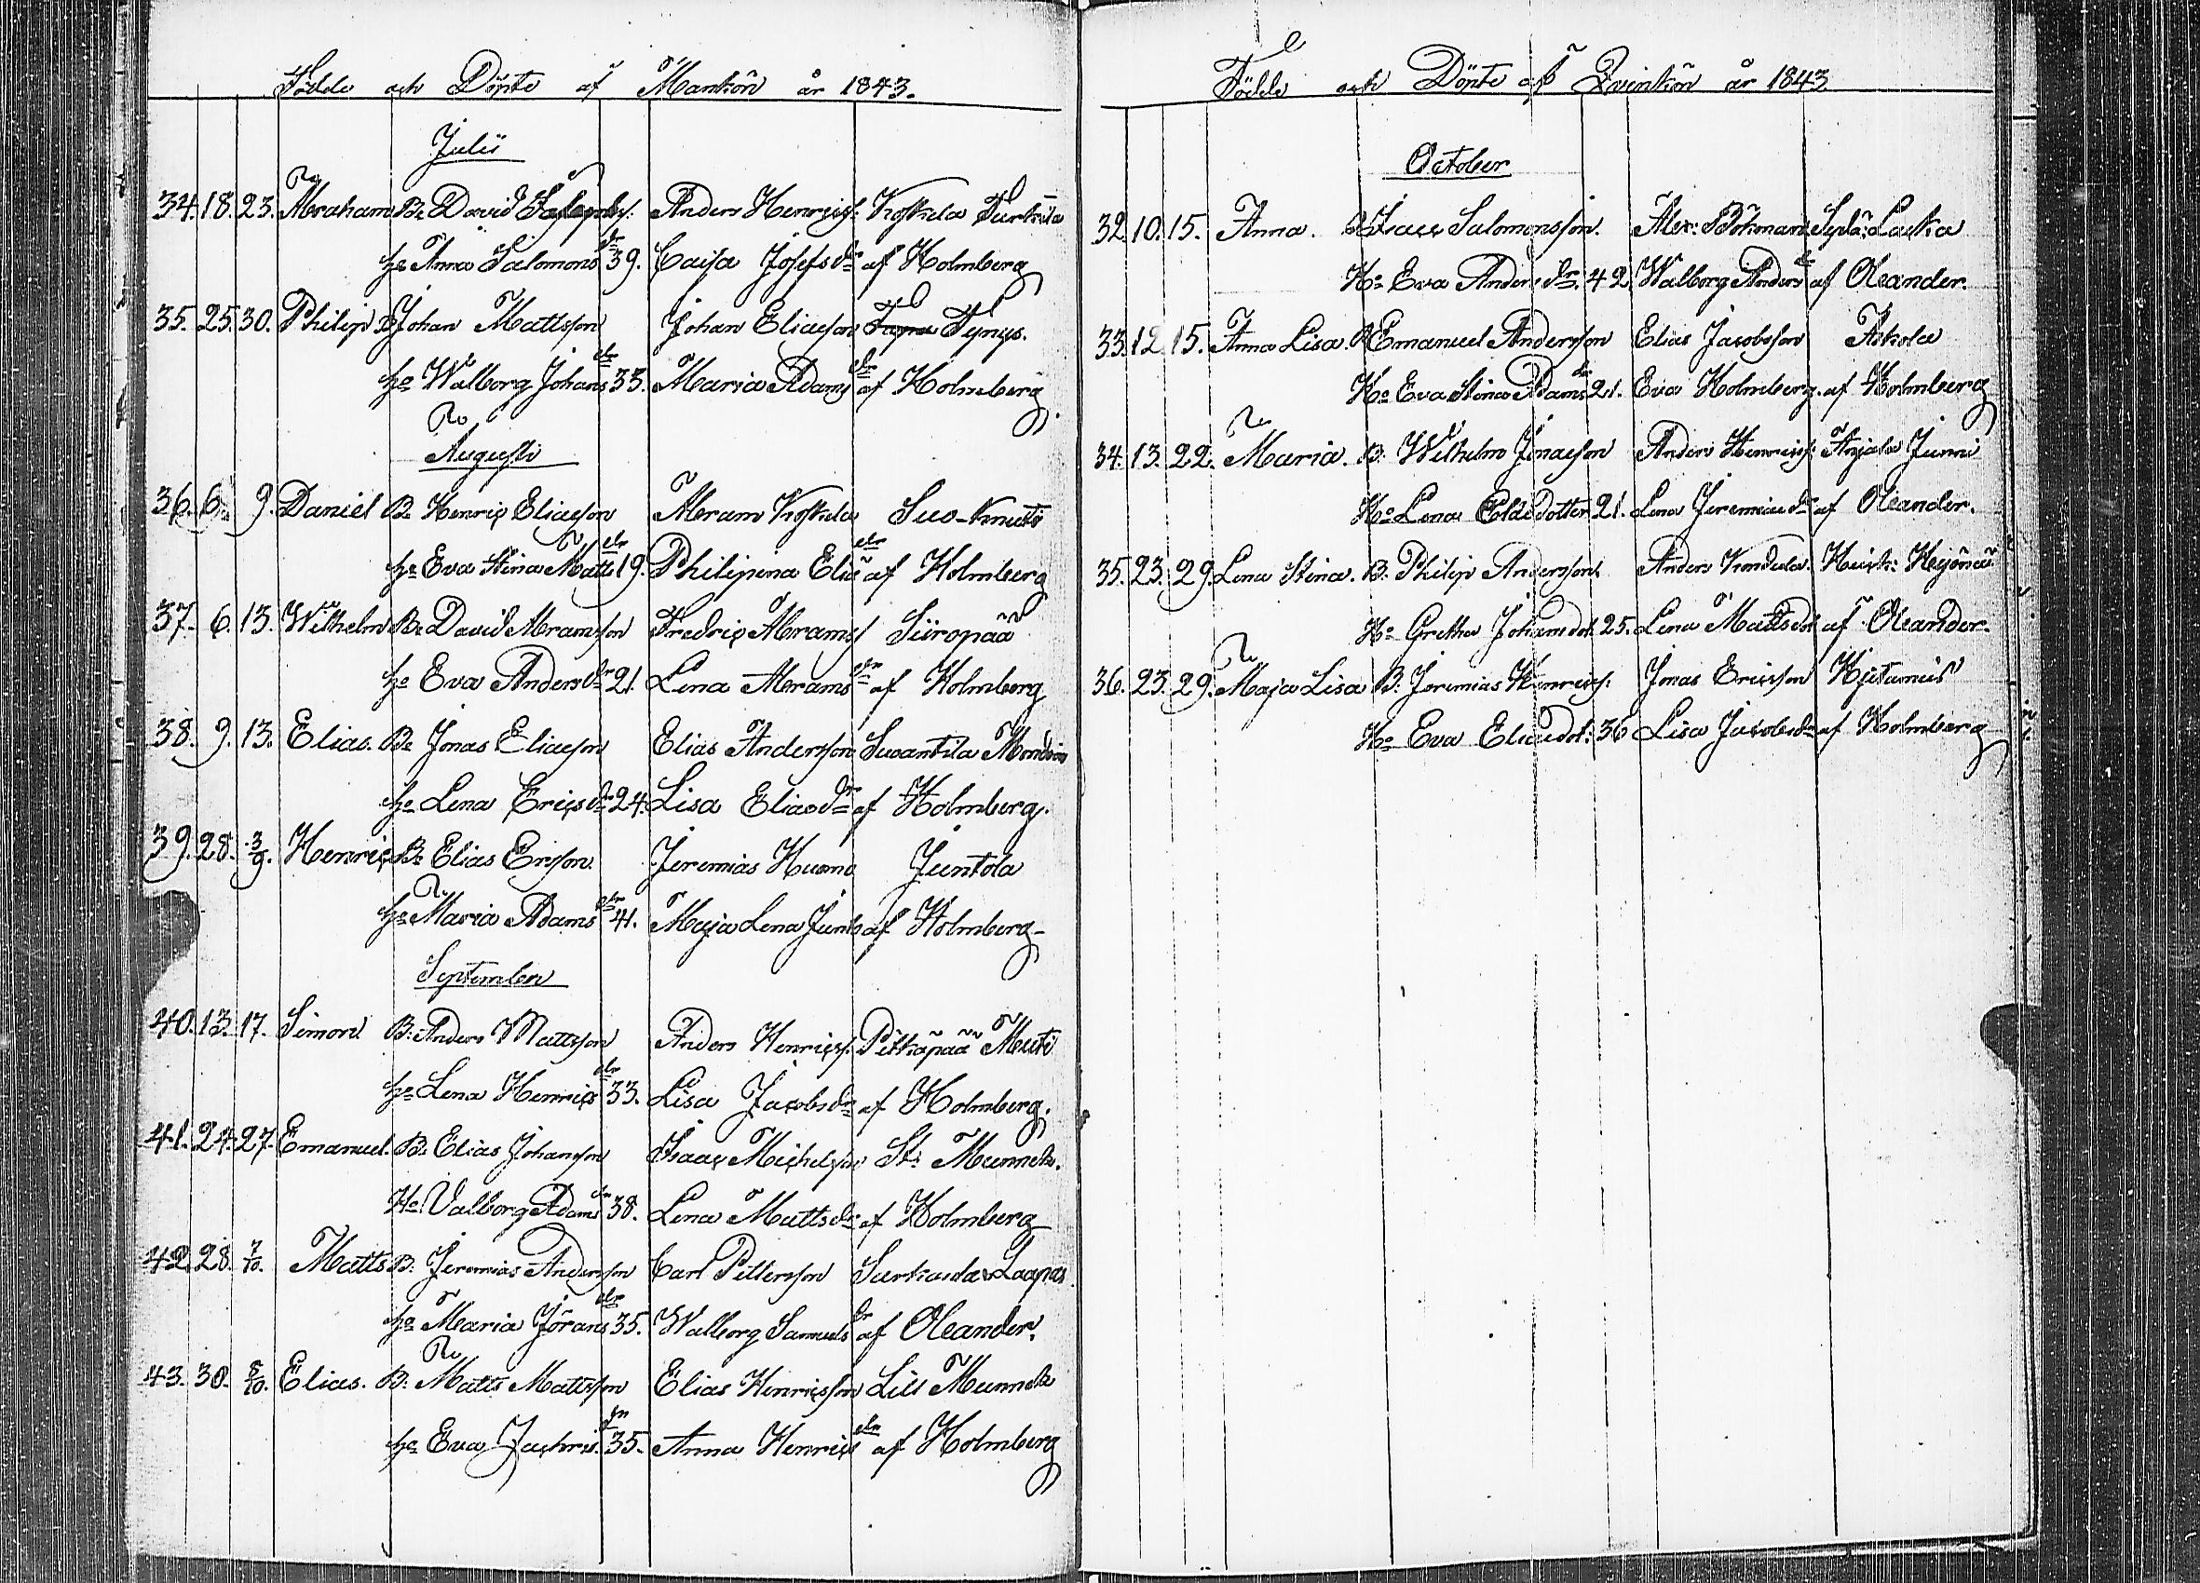 Födde och Döpte af Mankön år 1843.
Julii
34. 18. 23. Abraham Be David Anders Henricss: Koskela Turkila
he Anna Salomons dr 39. Caisa Josefsdr af Holmberg
35. 25. 30. Philip B Johan Mattsson Johan Eliasson Tynys.
he Walborg Johans dr 33. Maria Adams dr af Holmberg
Augusti
36. 6. 9. Daniel Be Henric Eliasson Abram Koskela Suo-Knuts
he Eva Stina Matts dr 19. Philipina Elias dr af Holmberg
37. 6. 13. Wilhelm Be David Abramsson Fredric Abramss Siiropää
he Eva Anders dr 21. Lena Abrams dr af Holmberg
38. 9. 13. Elias. Be Jonas Eliasson Elias Andersson Swantila
he Lena Ericsdr 24. Lisa Eliasdr af Holmberg.
39. 28. 3/9. Henric Be Elias Ersson. Jeremias Huomo Juntola
he Maria Adams dr 41. Maja Lena Junt af Holmberg
September
40. 13. 17. Simon B: Anders Mattsson Anders Henricss: Pitkäpää Muti
he Lena Henrics dr 33. Lisa Jacobsdr af Holmberg.
41. 24. 27. Emanuel. B: Elias Johansson Isaac Michelsson St: Munnek.
He Valborg Adams dr 38. Lena Mattsdr af Holmberg
42. 28. 7/10. Matts B: Jeremias Andersson Carl Pettersson Laapas
he Maria Jörans dr 35. Walborg Samuels dr af Oleander.
43. 30. 8/10. Elias. B: Matts Mattsson Elias Henricsson Lill Munnek
he Eva Zachris. dr 35. Anna Henrics dr af Holmberg
Födde och Döpte af Qvinkön år 1843
October
32. 10. 15. Anna. B Isaac Salomonsson. Alex: Böhman Sydä: Laska
He Eva Anders dr. 42. Walborg Anders dr af Oleander.
33. 12. 15. Anna Lisa. B Emanuel Andersson Elias Jacobsson Askola
He Eva Stina Adams dr 21. Eva Holmberg. af Holmberg
34. 13. 22. Maria. B: Wilhelm Jonasson Anders Henricss: Anjala Junni
He Lena dotter 21. Lena Jeremiædr af Oleander.
35. 23. 29. Lena Stina. B: Philip Andersson. Anders
He Gretha Johansdot. 25. Lena Mattsdot af Oleander.
36. 23. 29. Maja Lisa B: Jeremias Henricss: Jonas Ericsson
He Eva Eliædot: 36 Lisa Jacobsdr af Holmberg